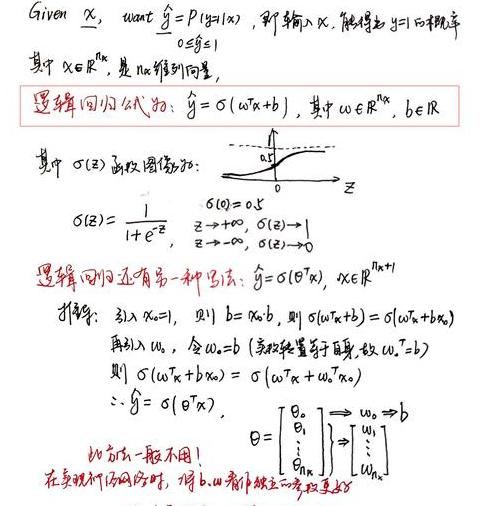 Given x, want ŷ=P(y=1|x), 即输入x, 能得出y=1的概率
0≤ŷ≤1
其中 x∈ℝⁿˣ, 是nx维列向量,
逻辑回归公式为: ŷ=σ(wᵀx+b), 其中 w∈ℝⁿˣ, b∈ℝ
其中 σ(z)函数图像为:
0.5
0
z
σ(z)= 1/(1+e⁻ᶻ),
σ(0)=0.5
z→+∞, σ(z)→1
z→-∞, σ(z)→0
逻辑回归还有另一种写法: ŷ=σ(θᵀx), x∈ℝⁿˣ⁺¹
推导: 引入x₀=1, 则 b=x₀·b, 则 σ(wᵀx+b)=σ(wᵀx+bx₀)
再引入w₀, 令w₀=b (实数转置等于自身,故w₀ᵀ=b)
则 σ(wᵀx+bx₀)=σ(wᵀx+w₀ᵀx₀)
∴ŷ=σ(θᵀx),
θ=[θ₀ θ₁ ⋮ θnx] ⇒ w₀→b
⇒ [w₁ ⋮ wnx]
此方法一般不用!
在实现神经网络时, 将b,w看作独立的参数更好